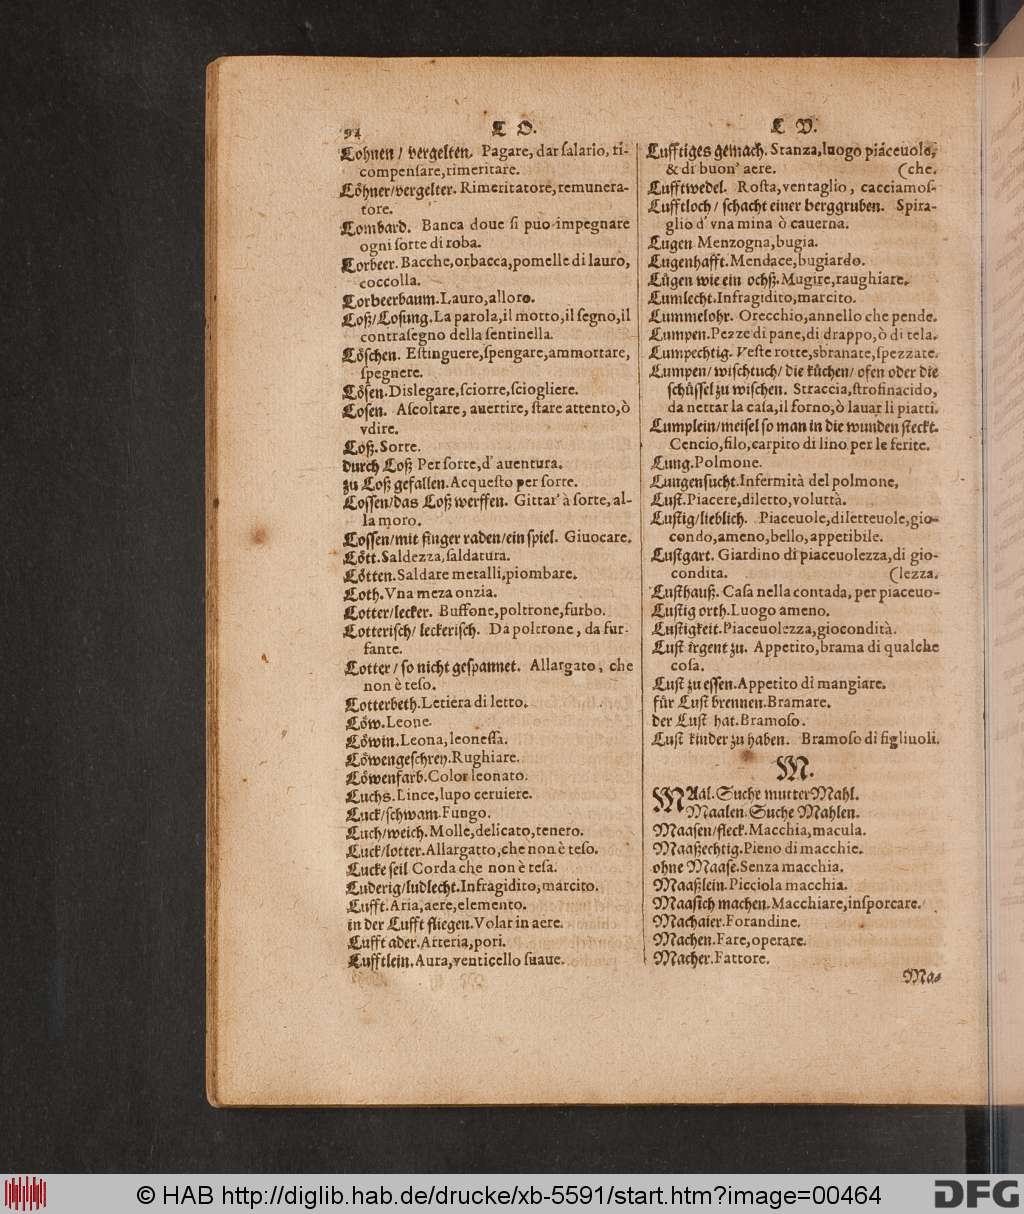 94
L O.
Lohnen / vergelten. Pagare, dar ſalario, ri-
compenſare, rimeritare.
Löhner/vergelter. Rimeritatore, remunera-
tore.
Lombard. Banca doue ſi puo impegnare
ogni ſorte di roba.
Lorbeer. Bacche, orbacca, pomelle di lauro,
coccolla.
Lorbeerbaum. Lauro, alloro.
Loß/Loſung. La parola, il motto, il ſegno, il
contraſegno della ſentinella.
Löſchen. Eſtinguere, ſpengare, ammortare,
ſpegnere.
Löſen. Dislegare, ſciorre, ſciogliere.
Loſen. Aſcoltare, auertire, ſtare attento, ò
vdire.
Loß. Sorte.
durch Loß Per ſorte, d' auentura.
zu Loß gefallen. Acqueſto per ſorte.
Loſſen/das Loß werffen. Gittar' à ſorte, al-
la moro.
Loſſen/mit finger raden/ein ſpiel. Giuocare.
Lött. Saldezza, ſaldatura.
Lötten. Saldare metalli, piombare.
Loth. Vna meza onzia.
Lotter/lecker. Buffone, poltrone, furbo.
Lotteriſch/ leckeriſch. Da poltrone, da fur-
fante.
Lotter / ſo nicht geſpannet. Allargato, che
non è teſo.
Lotterbeth. Letiera di letto.
Löw. Leone.
Löwin. Leona, leoneſſa.
Löwengeſchrey. Rughiare.
Löwenfarb. Color leonato.
Luchs. Lince, lupo ceruiere.
Luck/ſchwam. Fungo.
Luch/weich. Molle, delicato, tenero.
Luck/lotter. Allargatto, che non è teſo.
Lucke ſeil Corda che non è teſa.
Luderig/ludlecht. Infragidito, marcito.
Lufft. Aria, aere, elemento.
in der Lufft fliegen. Volar in aere.
Lufft ader. Arteria, pori.
Lufftlein. Aura, venticello ſuaue.
L V.
Lufftiges gemach. Stanza, luogo piaceuole,
& di buon' aere. (che.
Lufftwedel. Roſta, ventaglio, cacciamoſ-
Lufftloch / ſchacht einer berggruben. Spira-
glio d' vna mina ò cauerna.
Lugen Menzogna, bugia.
Lugenhafft. Mendace, bugiardo.
Lůgen wie ein ochß. Mugire, raughiare.
Lumlecht. Infragidito, marcito.
Lummelohr. Orecchio, annello che pende.
Lumpen. Pezze di pane, di drappo, ò di tela.
Lumpechtig. Veſte rotte, sbranate, ſpezzate.
Lumpen/ wiſchtuch/ die kůchen/ ofen oder die
ſchůſſel zu wiſchen. Straccia, ſtrofinacido,
da nettar la caſa, il forno, ò lauar li piatti.
Lumplein/meiſel ſo man in die wunden ſteckt.
Cencio, filo, carpito di lino per le ferite.
Lung. Polmone.
Lungenſucht. Infermità del polmone,
Luſt. Piacere, diletto, voluttà.
Luſtig/lieblich. Piaceuole, diletteuole, gio-
condo, ameno, bello, appetibile.
Luſtgart. Giardino di piaceuolezza, di gio-
condita. (lezza.
Luſthauß. Caſa nella contada, per piaceuo-
Luſtig orth. Luogo ameno.
Luſtigkeit. Piaceuolezza, giocondità.
Luſt irgent zu. Appetito, brama di qualche
coſa.
Luſt zu eſſen. Appetito di mangiare.
fůr Luſt brennen. Bramare.
der Luſt hat. Bramoſo.
Luſt kinder zu haben. Bramoſo di figliuoli.
M.
MAal. Suche mutter Mahl.
Maalen. Suche Mahlen.
Maaſen/fleck. Macchia, macula.
Maaßechtig. Pieno di macchie.
ohne Maaſe. Senza macchia.
Maaßlein. Picciola macchia.
Maaſich machen. Macchiare, inſporcare.
Machaier. Forandine.
Machen. Fare, operare.
Macher. Fattore.
Ma-
© HAB http://diglib.hab.de/drucke/xb-5591/start.htm?image=00464
DFG